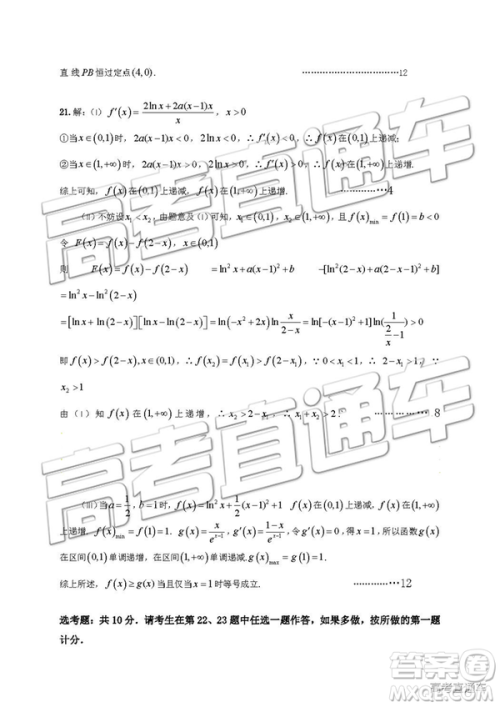 直线PB恒过定点(4,0). ……………………………12
21.解:(I) f′(x)=(2ln x+2a(x−1)x)/x, x>0
①当x∈(0,1)时, 2a(x−1)x<0, 2ln x<0, ∴f′(x)<0, ∴f(x)在(0,1)上递减;
②当x∈(1,+∞)时, 2a(x−1)x>0, 2ln x>0, ∴f′(x)>0, ∴f(x)在(1,+∞)上递增.
综上可知, f(x)在(0,1)上递减, f(x)在(1,+∞)上递增. …………4
(II) 不妨设x₁<x₂, 由题意及(I)可知, x₁∈(0,1), x₂∈(1,+∞), 且f(x)min=f(1)=b<0
令 F(x)=f(x)−f(2−x), x∈(0,1)
则 F(x)=f(x)−f(2−x) =ln²x+a(x−1)²+b −[ln²(2−x)+a(2−x−1)²+b]
=ln²x−ln²(2−x)
=[ln x+ln(2−x)][ln x−ln(2−x)]=ln(−x²+2x)ln x/(2−x)=ln[−(x−1)²+1]ln(1/(2/x−1))>0
即f(x)>f(2−x),x∈(0,1), ∴f(x₂)=f(x₁)>f(2−x₁), ∵0<x₁<1, ∴2−x₁>1, ∵
x₂>1
由(I)知f(x)在(1,+∞)上递增, ∴x₂>2−x₁, ∴x₁+x₂>2. …………… 8
(III)当a=1/2, b=1时, f(x)=ln²x+1/2(x−1)²+1 在(0,1)上递减, 在(1,+∞)
上递增, f(x)min=f(1)=1. g(x)=x/eˣ⁻¹, g′(x)=(1−x)/eˣ⁻¹, 令g′(x)=0, 得x=1, 所以函数g(x)
在区间(0,1)单调递增, 在区间(1,+∞)单调递减, g(x)max=g(1)=1.
综上所述, f(x)≥g(x)当且仅当x=1时等号成立. …………12
选考题:共10分.请考生在第22、23题中任选一题作答,如果多做,按所做的第一题
计分.
高考直通车
答案圈
MXQE.COM
高考直通车